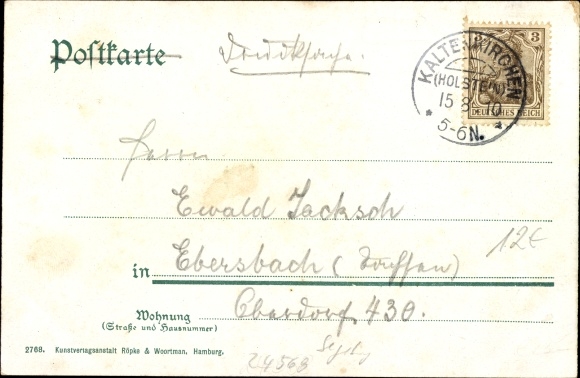 Postkarte Drucksache.
3
DEUTSCHES REICH
KALTENKIRCHEN
(HOLSTEIN)
15 8 10
* 5-6N. *
Herrn
Ewald Jacksch
12€
in Ebersbach (Sachsen)
Wohnung Oberdorf 430.
(Straße und Hausnummer)
2768. Kunstverlagsanstalt Röpke & Woortman, Hamburg.
24568